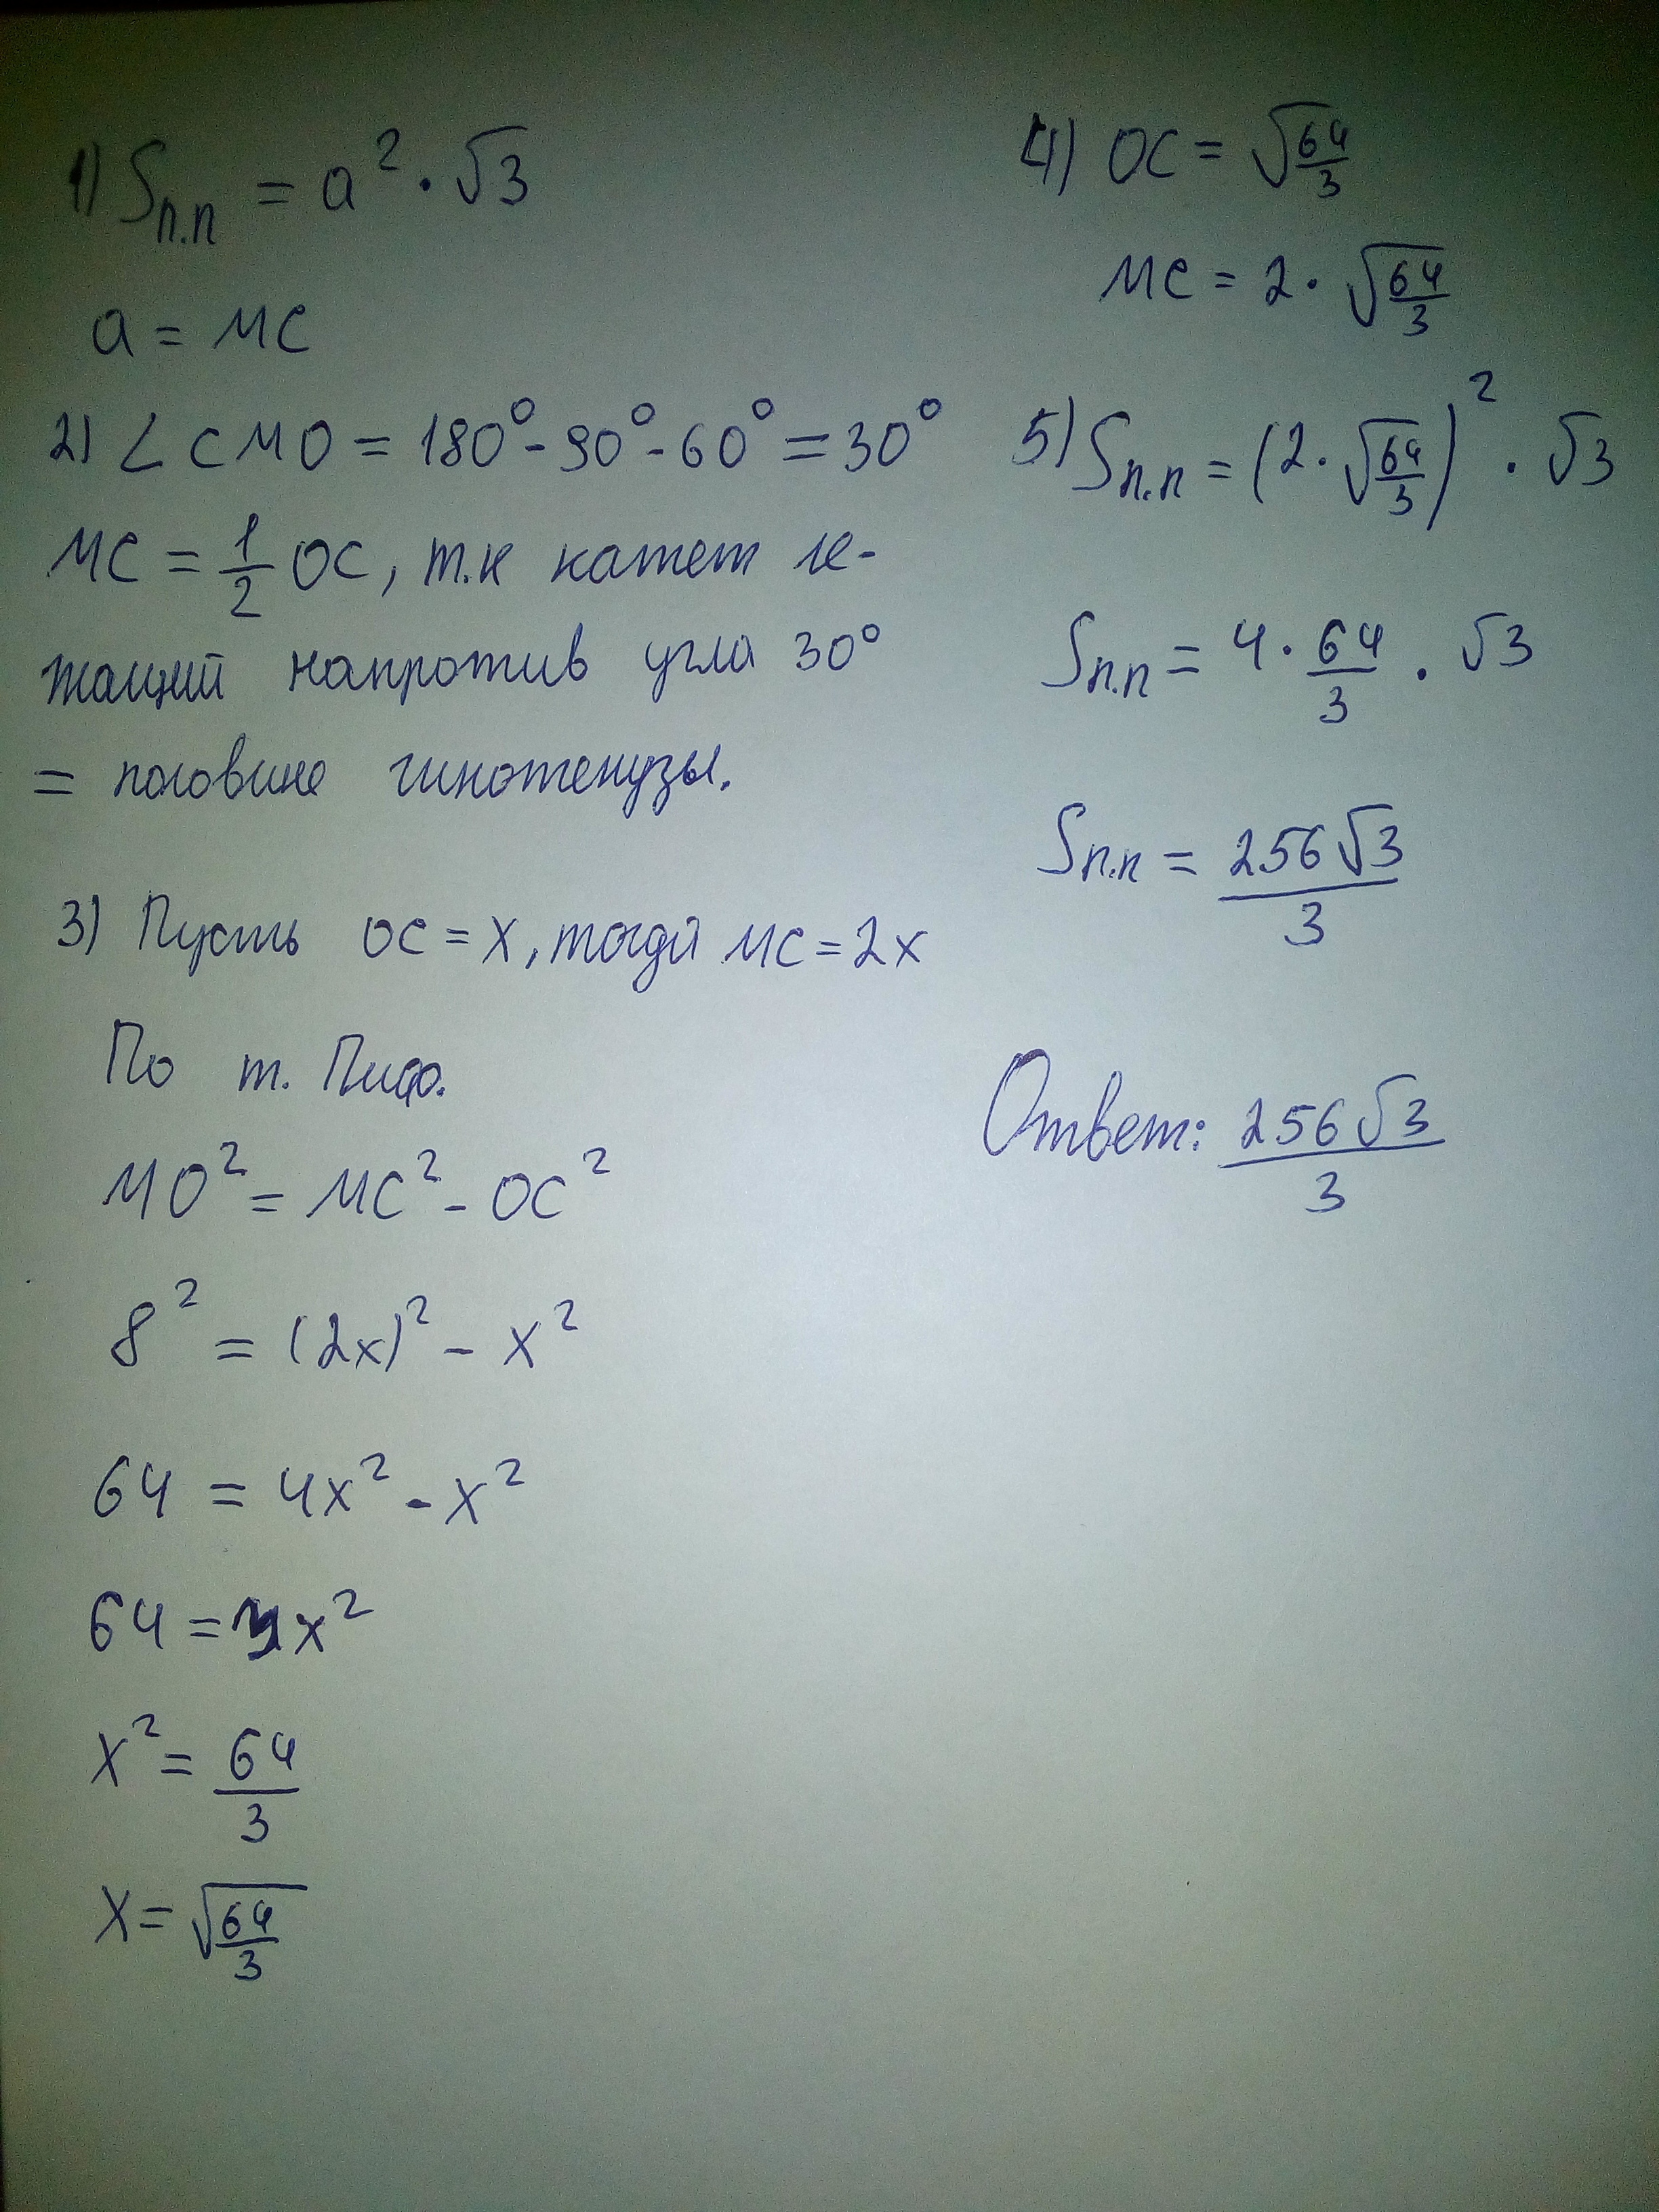 1) Sп.п = a² · √3
a = MC
2) ∠CMO = 180° - 90° - 60° = 30°
MC = 1/2 OC, т.к катет ле-
жащий напротив угла 30°
= половине гипотенузы.
3) Пусть OC = x, тогда MC = 2x
По т. Пифа.
MO² = MC² - OC²
8² = (2x)² - x²
64 = 4x² - x²
64 = 3x²
x² = 64/3
x = √64/3
4) OC = √64/3
MC = 2 · √64/3
5) Sп.п = (2 · √64/3)² · √3
Sп.п = 4 · 64/3 · √3
Sп.п = 256√3/3
Ответ: 256√3/3